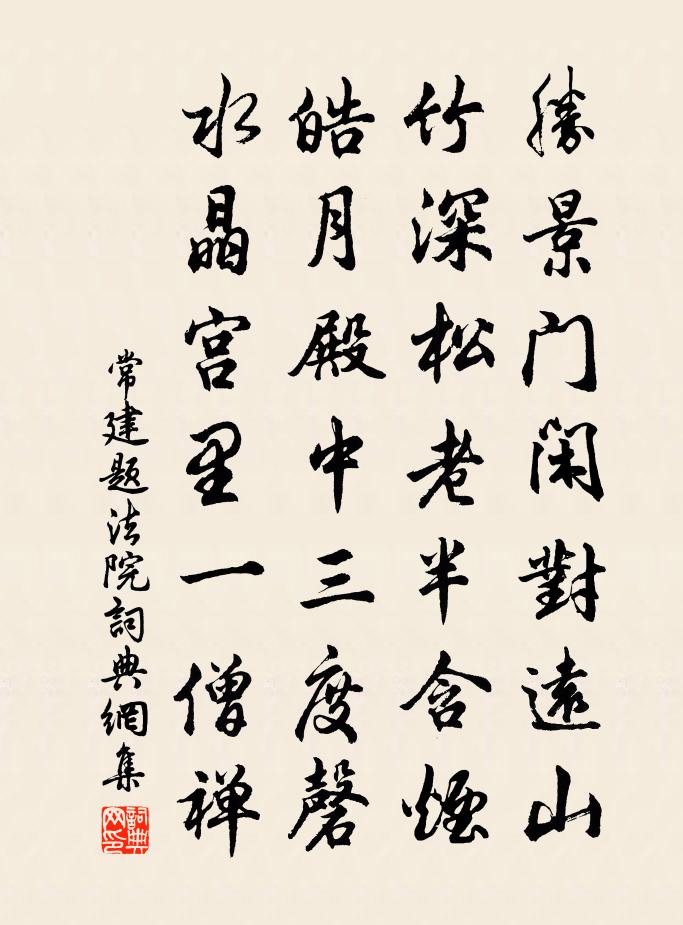 勝景门闲對遠山
竹深松老半含煙
皓月殿中三度磬
水晶宫里一僧禅
常建题法院詞典網集
詞典网印